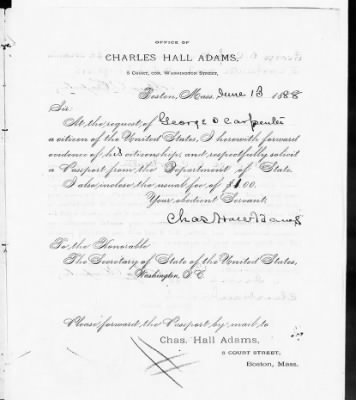 OFFICE OF
CHARLES HALL ADAMS,
5 COURT, COR. WASHINGTON STREET,
Boston, Mass. June 13 1888
Sir:
At the request of George D Carpenter
a citizen of the United States, I herewith forward
evidence of his citizenship, and respectfully solicit
a Passport from the Department of State.
I also inclose the usual fee of $1.00.
Your obedient Servant,
Chas. Hall Adams
To the Honorable
The Secretary of State of the United States,
Washington, D.C.
Please forward the Passport by mail to
Chas. Hall Adams,
5 COURT STREET,
Boston, Mass.